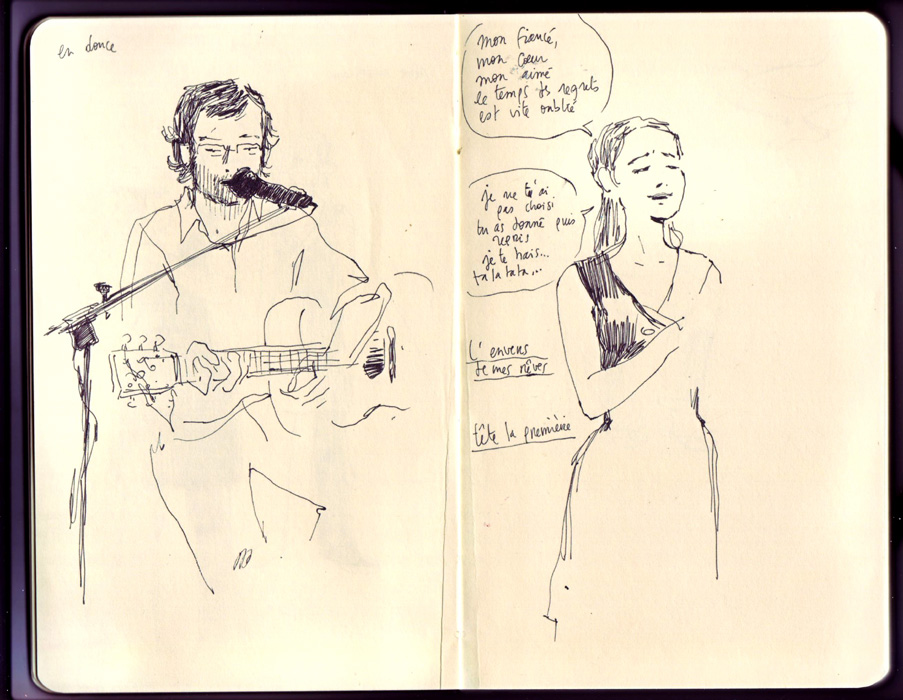 en douce
mon fiancé,
mon cœur
mon aimé
le temps des regrets
est vite oublié
je ne t'ai
pas choisi
tu as donné puis
repris
je te hais...
ta la ta ta...
L'envers
de mes rêves
tête la première